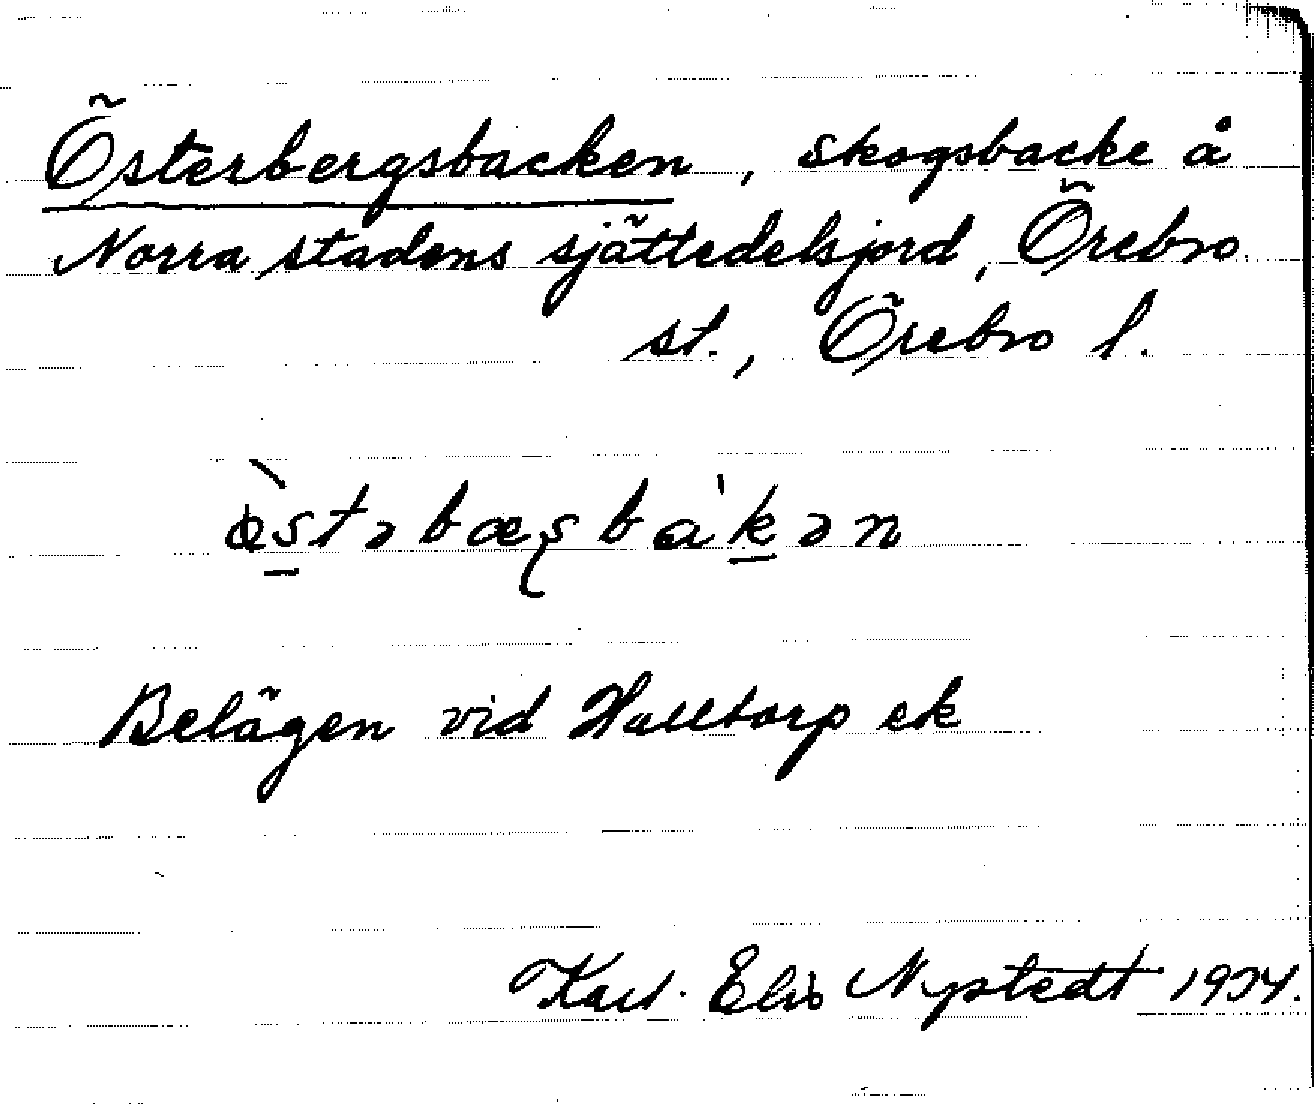 Österbergsbacken, skogsbacke å
Norra stadens sjättedelsjord, Örebro
st., Örebro l.
ö̀stəbæʂbákən
Belägen vid Halltorp ek
Karl. Elis Nystedt 1934.